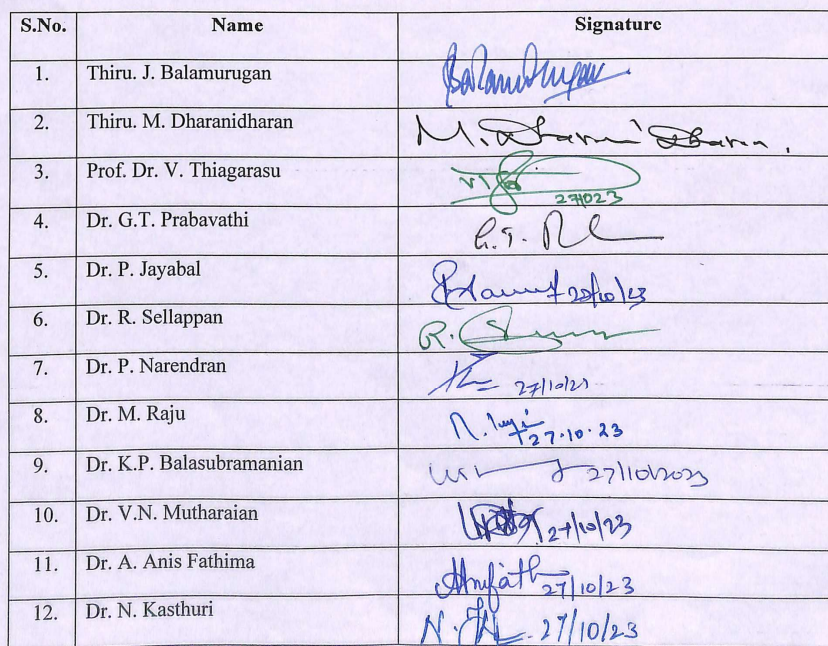 S.No. Name Signature
1. Thiru. J. Balamurugan Balamurugan
2. Thiru. M. Dharanidharan M. Dharani Dharan.
3. Prof. Dr. V. Thiagarasu 271023
4. Dr. G.T. Prabavathi G.T.
5. Dr. P. Jayabal
6. Dr. R. Sellappan R.
7. Dr. P. Narendran
8. Dr. M. Raju 27.10.23
9. Dr. K.P. Balasubramanian 27/10/2023
10. Dr. V.N. Mutharaian 27/10/23
11. Dr. A. Anis Fathima 27/10/23
12. Dr. N. Kasthuri N. 27/10/23